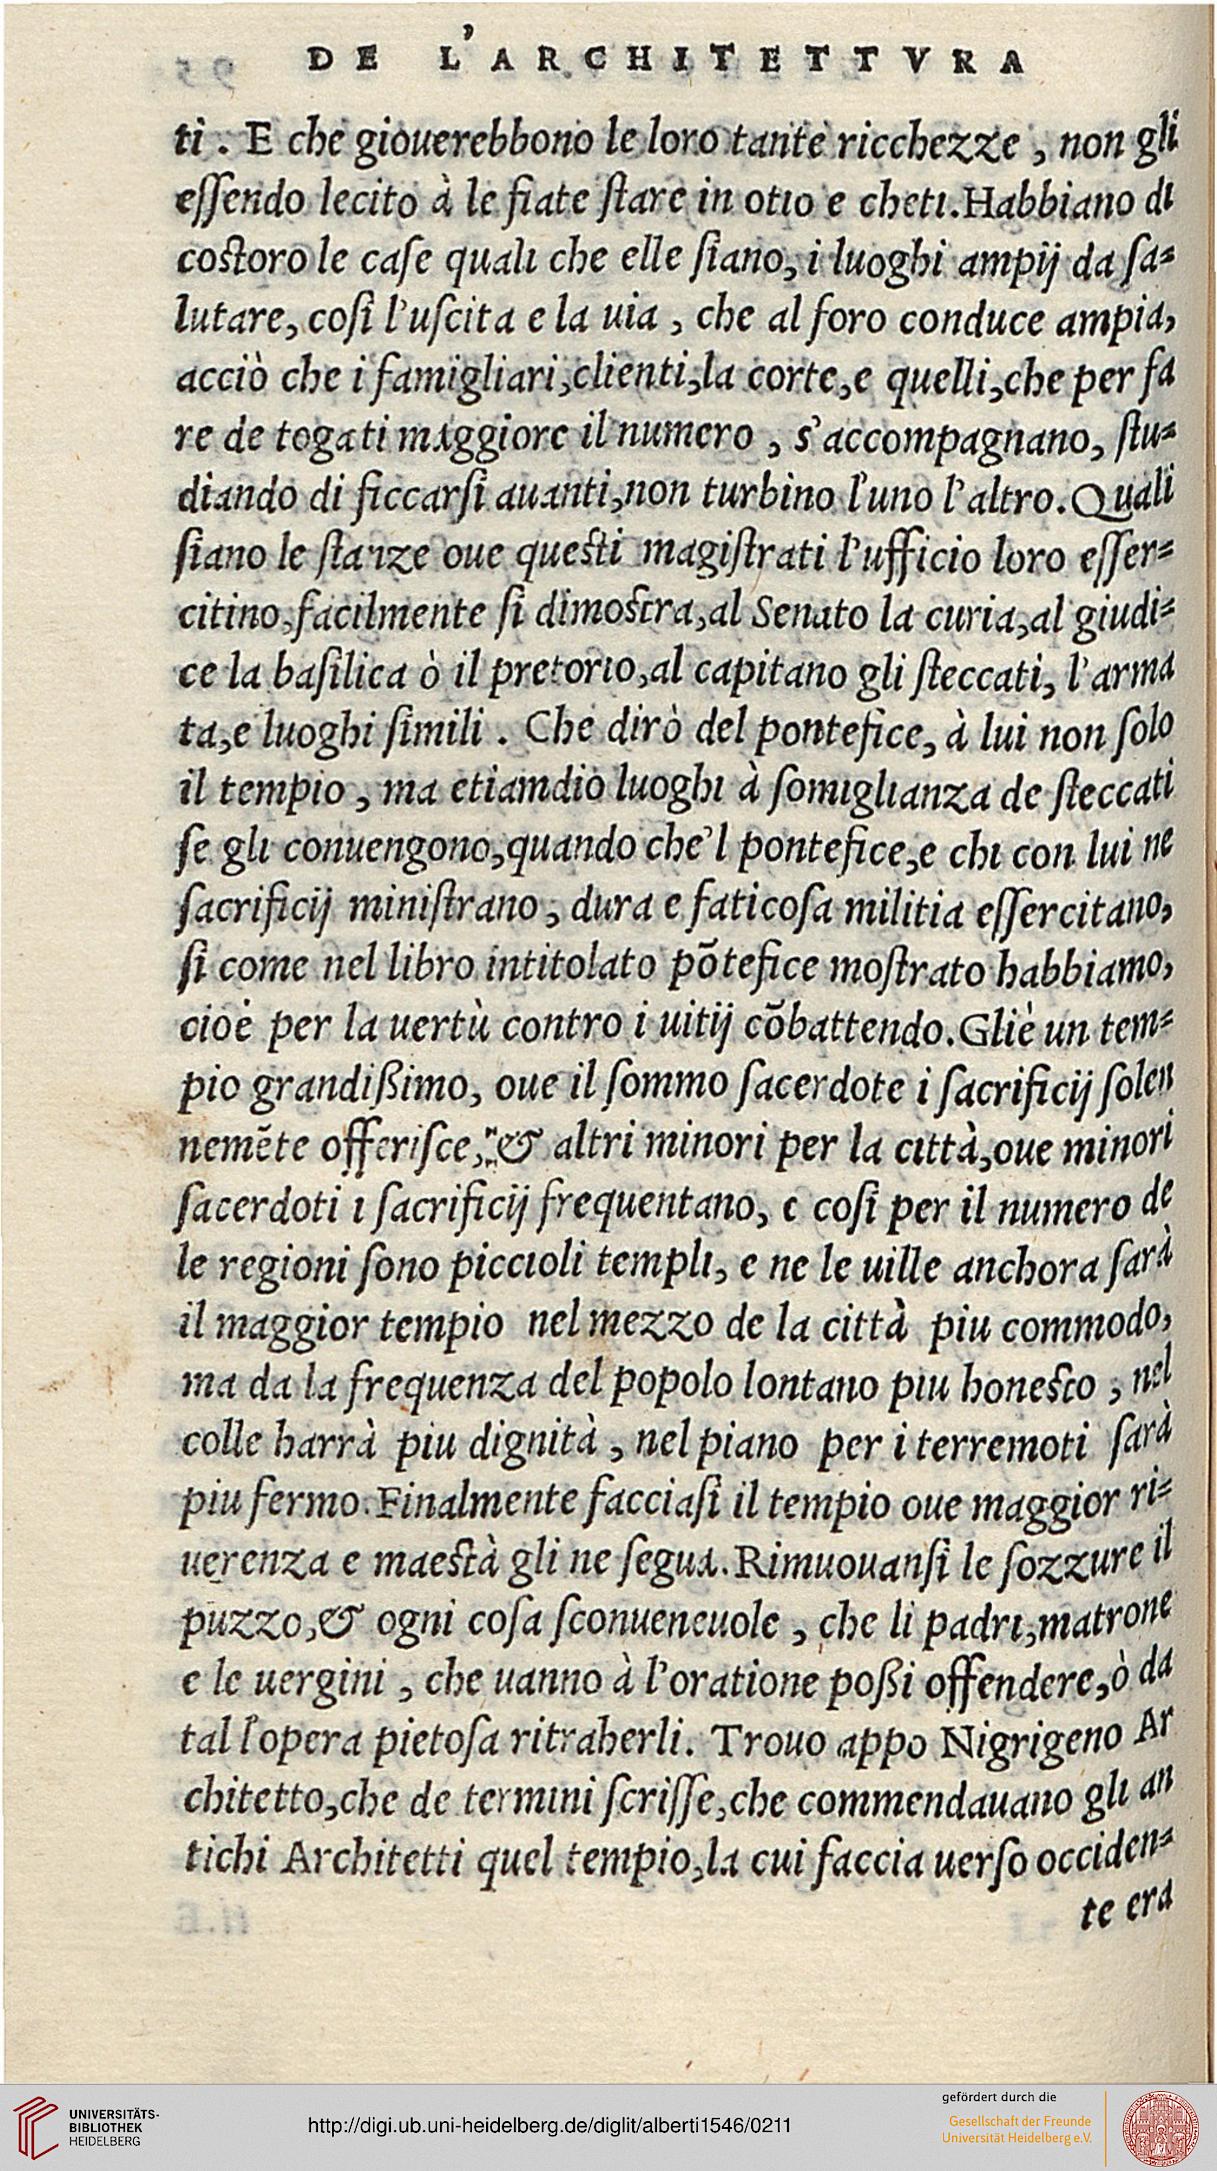 DE L'ARCHITETTVRA
ti . E che giouerebbono le loro tante ricchezze , non gli
eſſendo lecito à le fiate ſtare in otio e cheti.Habbiano di
coſtoro le caſe quali che elle ſiano, i luoghi ampij da ſa⸗
lutare, coſi l'uſcita e la uia , che al foro conduce ampia,
acciò che i famigliari,clienti,la corte,e quelli,che per fa
re de togati maggiore il numero , s'accompagnano, ſtu⸗
diando di ficcarſi auanti,non turbino l'uno l'altro.Quali
ſiano le ſtanze oue queſti magiſtrati l'ufficio loro eſſer⸗
citino,facilmente ſi dimoſtra,al Senato la curia,al giudi⸗
ce la baſilica ò il pretorio,al capitano gli ſteccati, l'arma
ta,e luoghi ſimili . Che dirò del pontefice, à lui non ſolo
il tempio , ma etiamdio luoghi à ſomiglianza de ſteccati
ſe gli conuengono,quando che'l pontefice,e chi con lui ne
ſacrificij miniſtrano , dura e faticoſa militia eſſercitano,
ſi come nel libro intitolato põtefice moſtrato habbiamo,
cioè per la uertù contro i uitij cõbattendo.Gliè un tem⸗
pio grandißimo, oue il ſommo ſacerdote i ſacrificij ſolen
nemẽte offeriſce, & altri minori per la città,oue minori
ſacerdoti i ſacrificij frequentano, e coſi per il numero de
le regioni ſono piccioli templi, e ne le uille anchora ſarà
il maggior tempio nel mezzo de la città piu commodo,
ma da la frequenza del popolo lontano piu honeſto , nel
colle harrà piu dignità , nel piano per i terremoti ſarà
piu fermo.Finalmente facciaſi il tempio oue maggior ri⸗
uerenza e maeſtà gli ne ſegua.Rimuouanſi le ſozzure il
puzzo,& ogni coſa ſconueneuole , che li padri,matrone
e le uergini , che uanno à l'oratione poßi offendere,ò da
tal l'opera pietoſa ritraherli. Trouo appo Nigrigeno Ar
chitetto,che de termini ſcriſſe,che commendauano gli an
tichi Architetti quel tempio,la cui faccia uerſo occiden⸗
te era
UNIVERSITÄTS-
BIBLIOTHEK
HEIDELBERG
http://digi.ub.uni-heidelberg.de/diglit/alberti1546/0211
gefördert durch die
Gesellschaft der Freunde
Universität Heidelberg e.V.